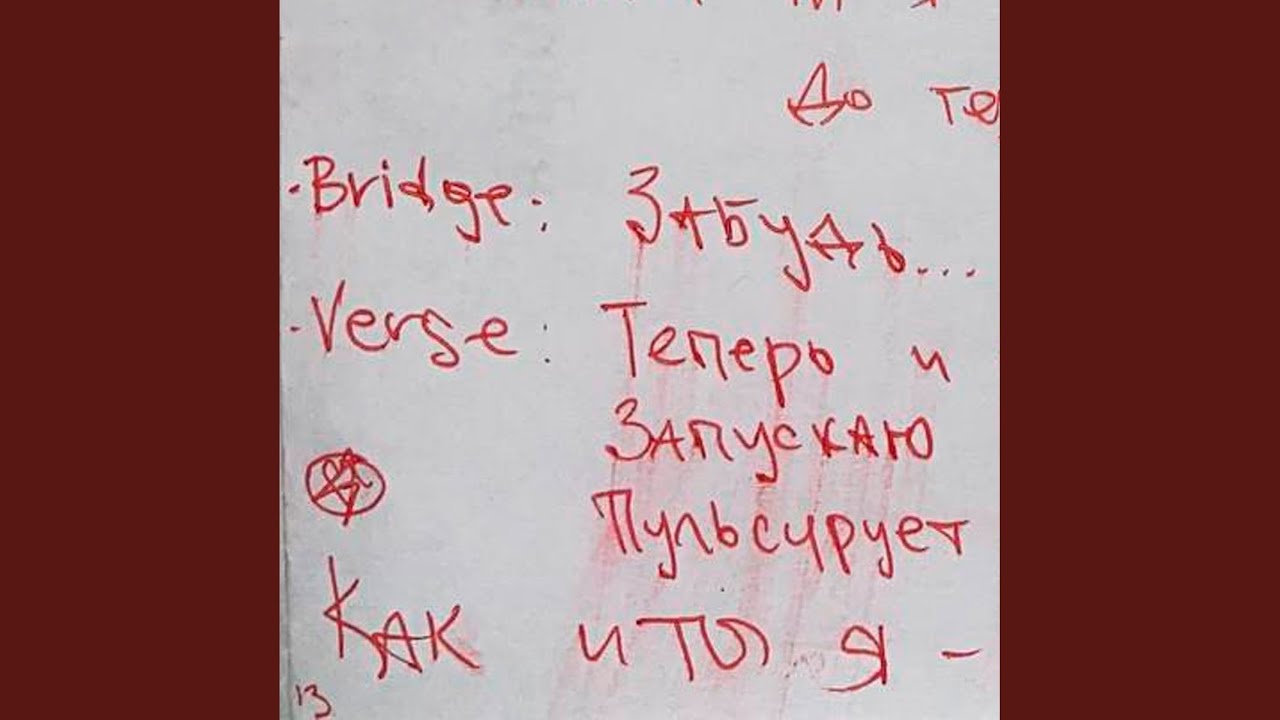 До те
·Bridge: Забудь...
·Verse: Теперь и
Запускаю
Пульсирует
Как и ты я –
13